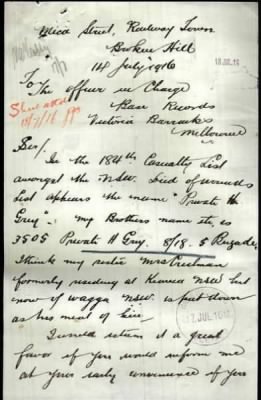 Mica Street, Railway Town
Broken Hill
14 July 1916
18 JUL. 16
To
The Officer in Charge
Base Records
Victoria Barracks
Melbourne
18/7/16
Sir/
In the 184th Casualty List
amongst the N.S.W. Died of wounds
List appears the name "Private H
Grey". My Brothers name etc, is
3505 Private H Grey 8/18 - 5 Brigade
I think my sister Mrs
formerly residing at Kiama NSW but
now of Wagga NSW. is put down
as his next of kin.
I would esteem it a great
favor if you would inform me
17 JUL 1916
at your early convenience if you